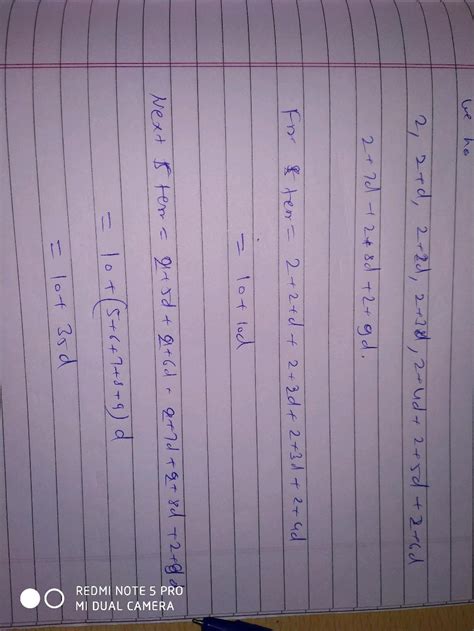 we ha
2, 2+d, 2+2d, 2+3d, 2+4d + 2+5d + 2+6d
2+7d + 2+8d + 2+9d.
For 5 term = 2+2+d + 2+2d + 2+3d + 2+4d
= 10+10d
Next 5 term = 2+5d + 2+6d + 2+7d + 2+8d + 2+9d
= 10+(5+6+7+8+9)d
= 10+ 35d
REDMI NOTE 5 PRO
MI DUAL CAMERA